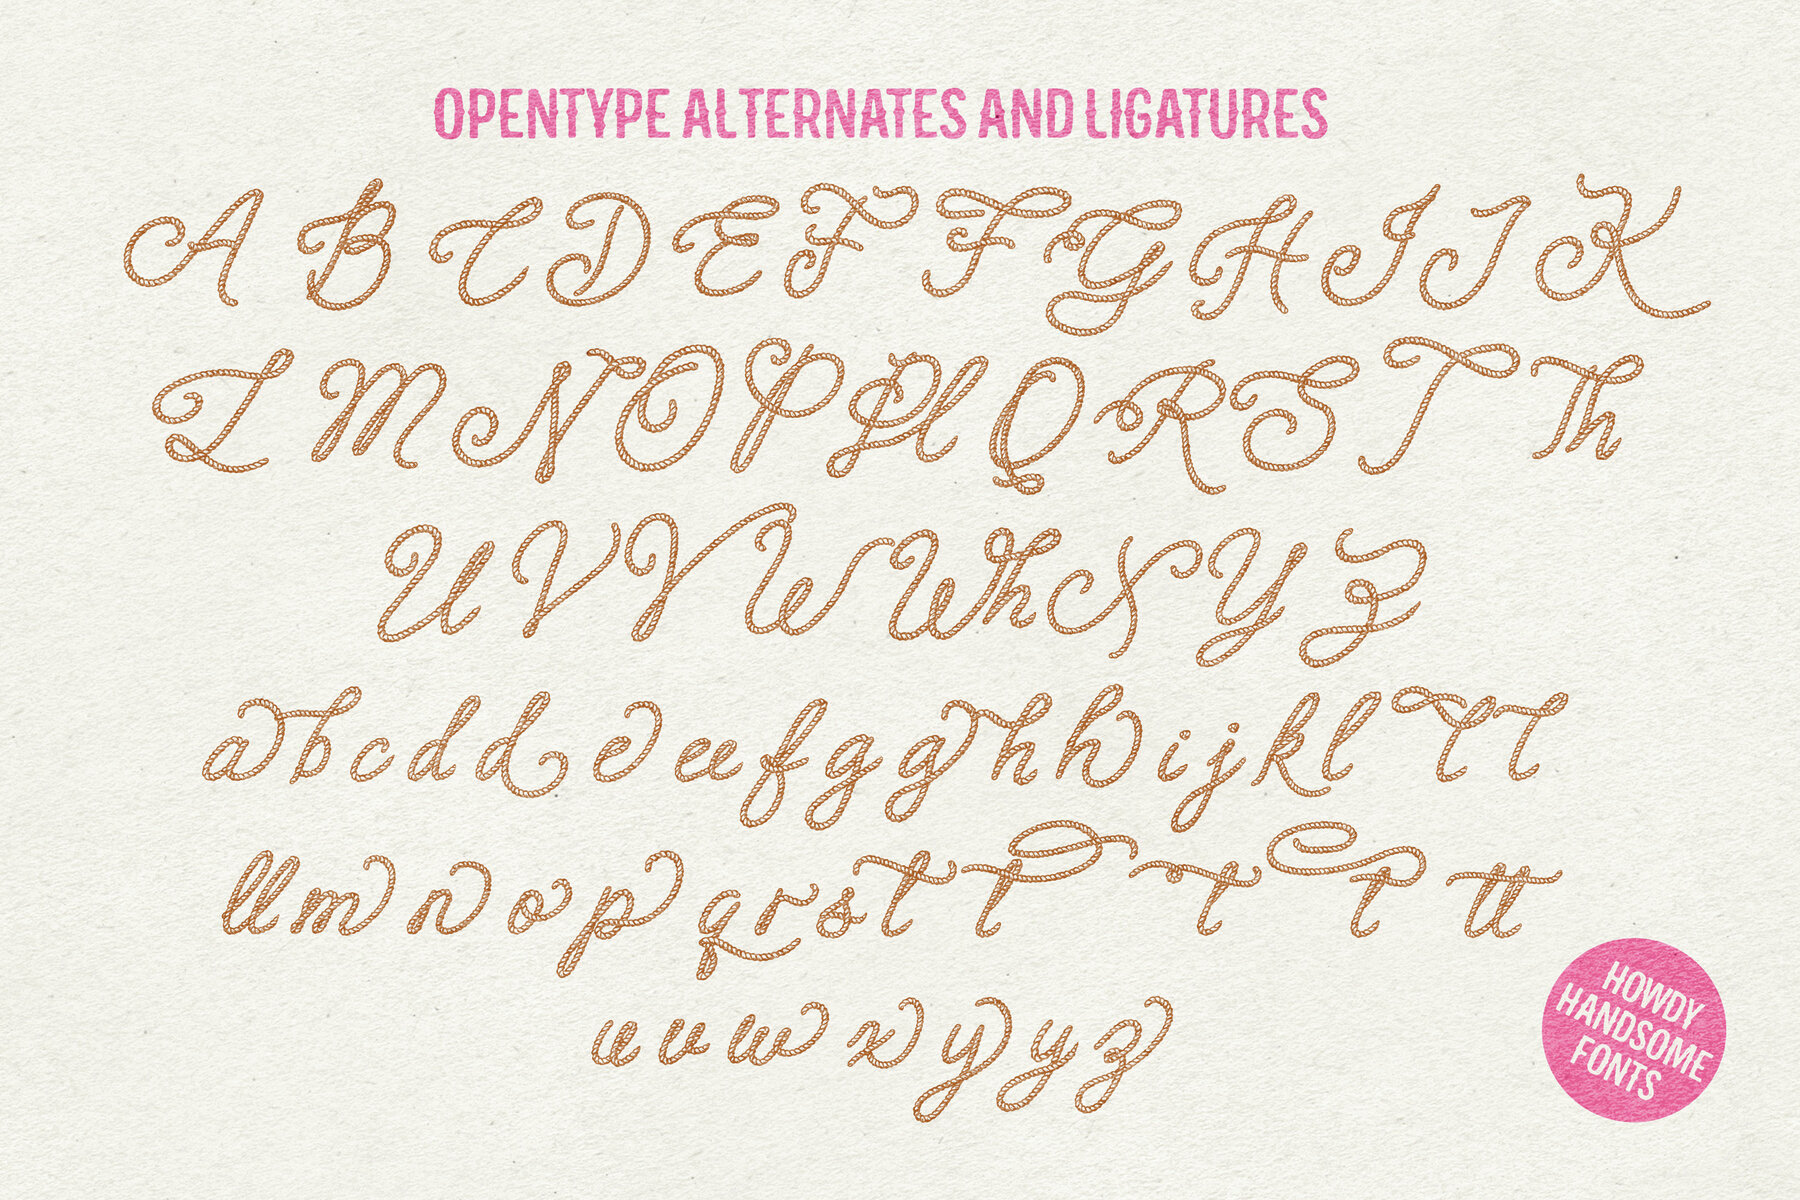 OPENTYPE ALTERNATES AND LIGATURES
A B C D E F F G H I J K
L M N O P Pl Q R S T Th
U V V W Wh X Y Z
a b c d d e ee f g g h h i j k l t t
ll m n o p q r s t t t t tt
u v w x y y z
HOWDY
HANDSOME
FONTS